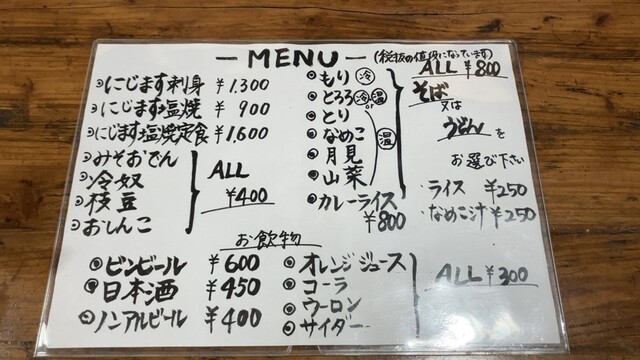 －MENU－(税抜の値段になっています)
◎にじます刺身 ¥1,300
◎にじます塩焼 ¥900
◎にじます塩焼定食 ¥1,600
◎みそおでん
◎冷奴
◎枝豆
◎おしんこ
ALL
¥400
◎もり(冷)
◎とろろ(冷)or(温)
◎とり
◎なめこ
◎月見
◎山菜
(温)
◎カレーライス
¥800
ALL ¥800
そば
又は
うどんを
お選び下さい
・ライス ¥250
・なめこ汁 ¥250
お飲物
◎ビンビール ¥600
◎日本酒 ¥450
◎ノンアルビール ¥400
◎オレンジジュース
◎コーラ
◎ウーロン
◎サイダー
ALL ¥300